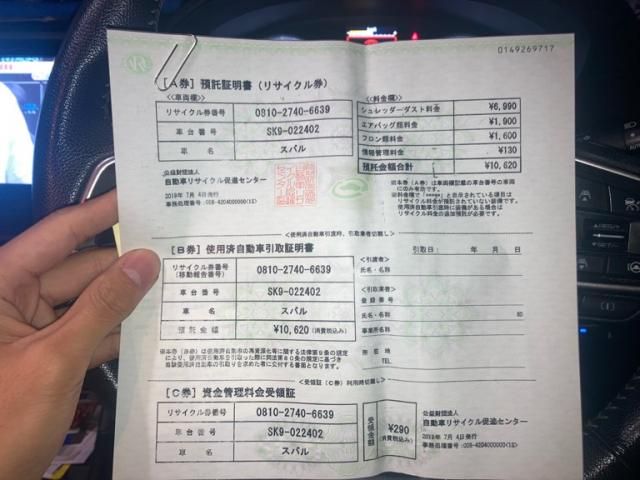 0149269717
【A券】預託証明書（リサイクル券）
<<車両欄>>
リサイクル券番号 0810-2740-6639
車台番号 SK9-022402
車名 スバル
公益財団法人
自動車リサイクル促進センター
2019年 7月 4日発行
<<料金欄>>
シュレッダーダスト料金 ¥6,990
エアバッグ類料金 ¥1,900
フロン類料金 ¥1,600
情報管理料金 ¥130
預託金額合計 ¥10,620
※本券（A券）は車両欄記載の車台番号の車両
にのみ有効です。
<使用済自動車引渡時、引取業者切離し>
【B券】使用済自動車引取証明書
引取日： 年 月 日
リサイクル券番号
(移動報告番号) 0810-2740-6639
車台番号 SK9-022402
車名 スバル
預託金額 ¥10,620 (消費税込み)
<引渡者>
氏名・名称
<引取業者>
登録番号
氏名・名称 印
事業所名
所在地
TEL
<受領証（C券）利用時切離し>
【C券】資金管理料金受領証
リサイクル券番号 0810-2740-6639
車台番号 SK9-022402
車名 スバル
受領金額 ¥290
(消費税込み)
公益財団法人
自動車リサイクル促進センター
2019年 7月 4日発行